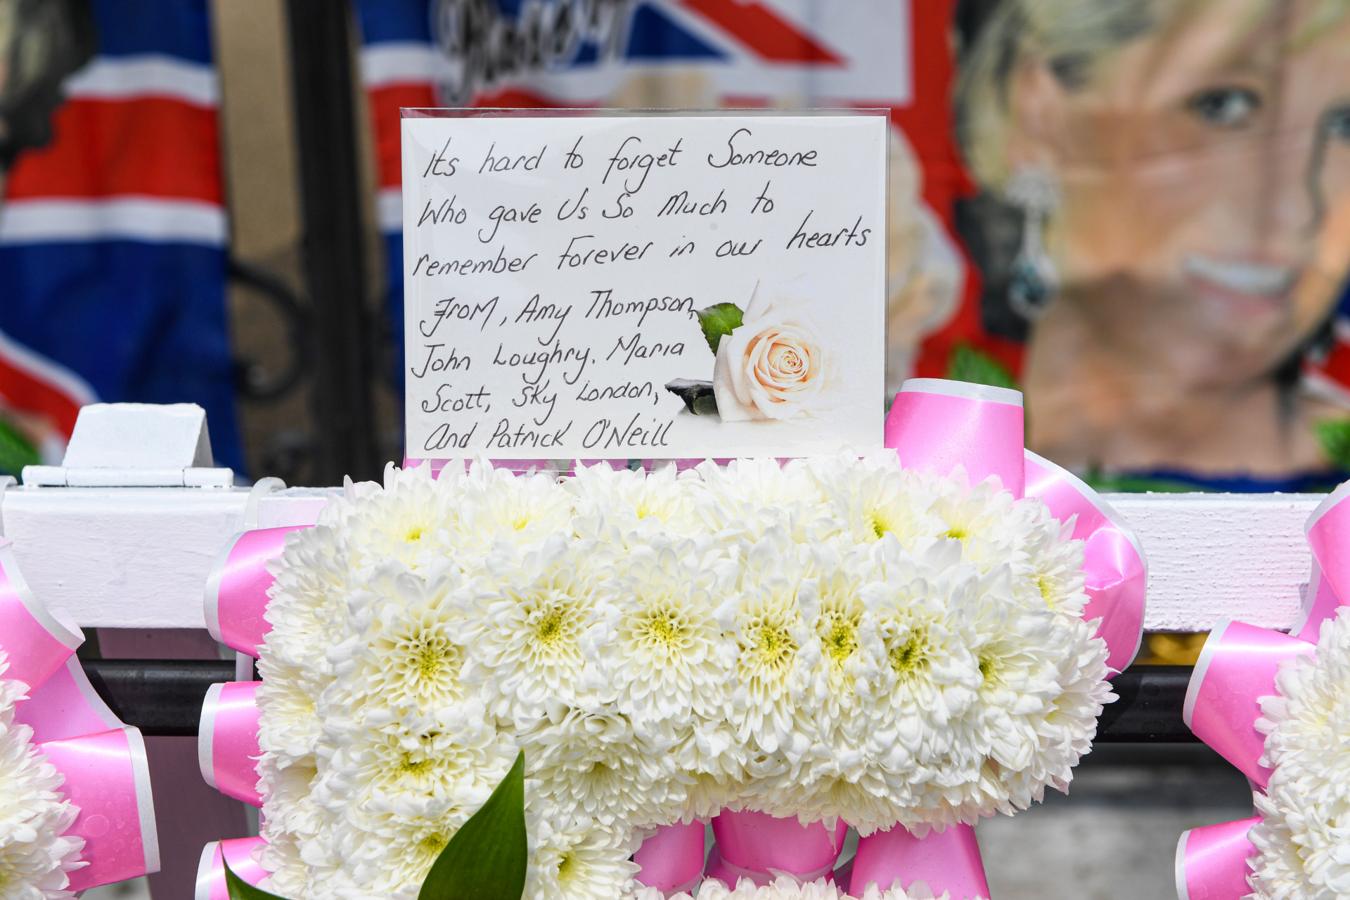 Its hard to forget Someone
Who gave Us So Much to
remember Forever in our hearts
From, Amy Thompson,
John Loughry. Maria
Scott, Sky London,
And Patrick O'Neill